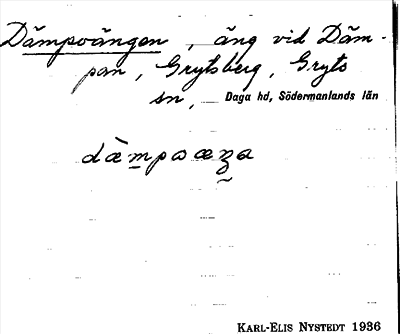 Dämpoängen, äng vid Däm-
pan, Grytsberg, Gryts
sn, Daga hd, Södermanlands län
dàmpoæŋa
KARL-ELIS NYSTEDT 1936